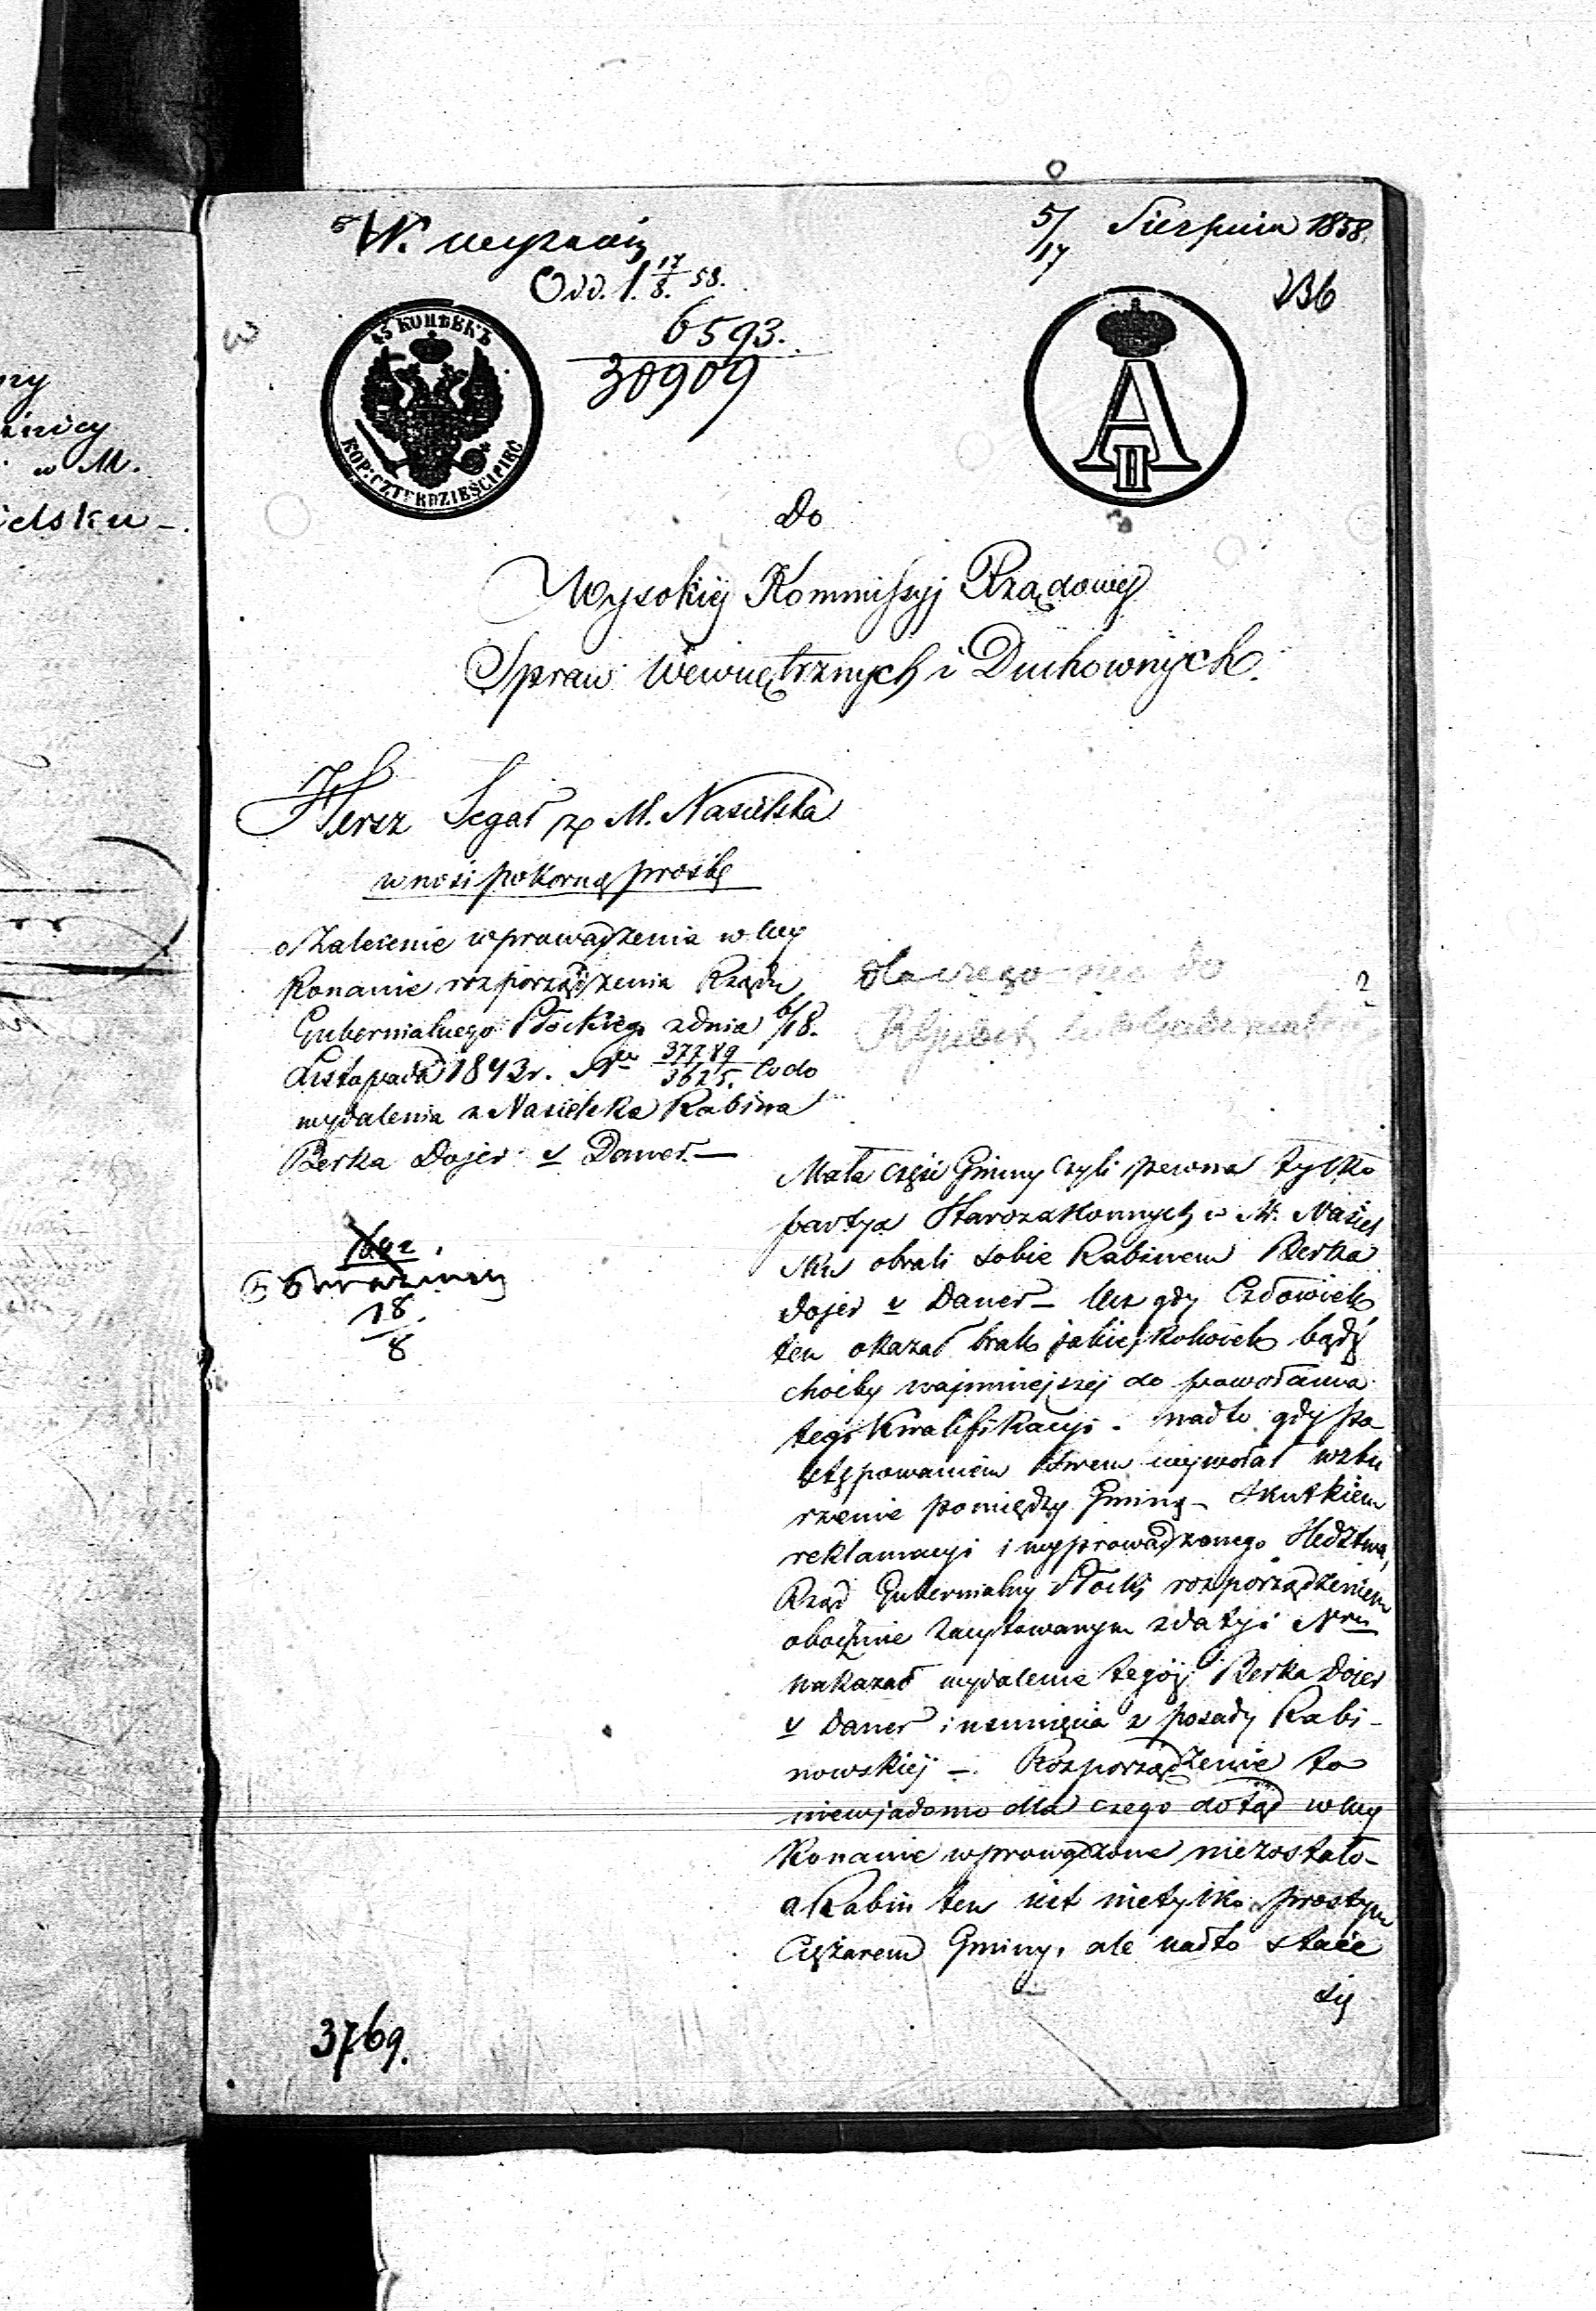 W. wyznań
5/17 Sierpnia 1858.
Odd. 1. 17/8. 58.
236
6593.
30909
45 КОПѢЕКЪ
KOP: CZTERDZIEŚCI PIĘC
A II
Do
Wysokiej Kommissyj Rządowej
Spraw Wewnętrznych i Duchownych.
Hersz Segał z M. Nasielska
wnosi pokorną prośbę
o Zalecenie wprowadzenia w wy
konanie rozporządzenia Rządu
Gubernialnego Płockiego z dnia 6/18.
Listopada 1843 r. Nr 37789/3625. co do
wydalenia z Nasielska Rabina
Berka Dojer v Daner. —
dla czego nie do
18/8
Mała część Gminy czyli pewna tylko
partya Starozakonnych w M. Nasiel
sku obrali sobie Rabinem Berka
Dojer v Daner — lecz gdy Człowiek
ten okazał brak jakiejkolwiek bądź
choćby najmniejszej do powołania
tego Kwalifikacyi. nadto gdy po
stępowaniem swem wywołał wzbu
rzenie pomiędzy Gminą — skutkiem
reklamacyi i wyprowadzonego śledztwa,
Rząd Gubernialny Płocki rozporządzeniem
obocznie zacytowanym z daty i Nru
nakazał wydalenie tegoż Berka Dojer
v Daner i usunięcia z posady Rabi-
nowskiej —. Rozporządzenie to
niewiadomo dla czego dotąd w wy
konanie wprowadzone niezostało —
a Rabin ten jest nietylko prostym
Ciężarem Gminy, ale nadto staie
się
3769.